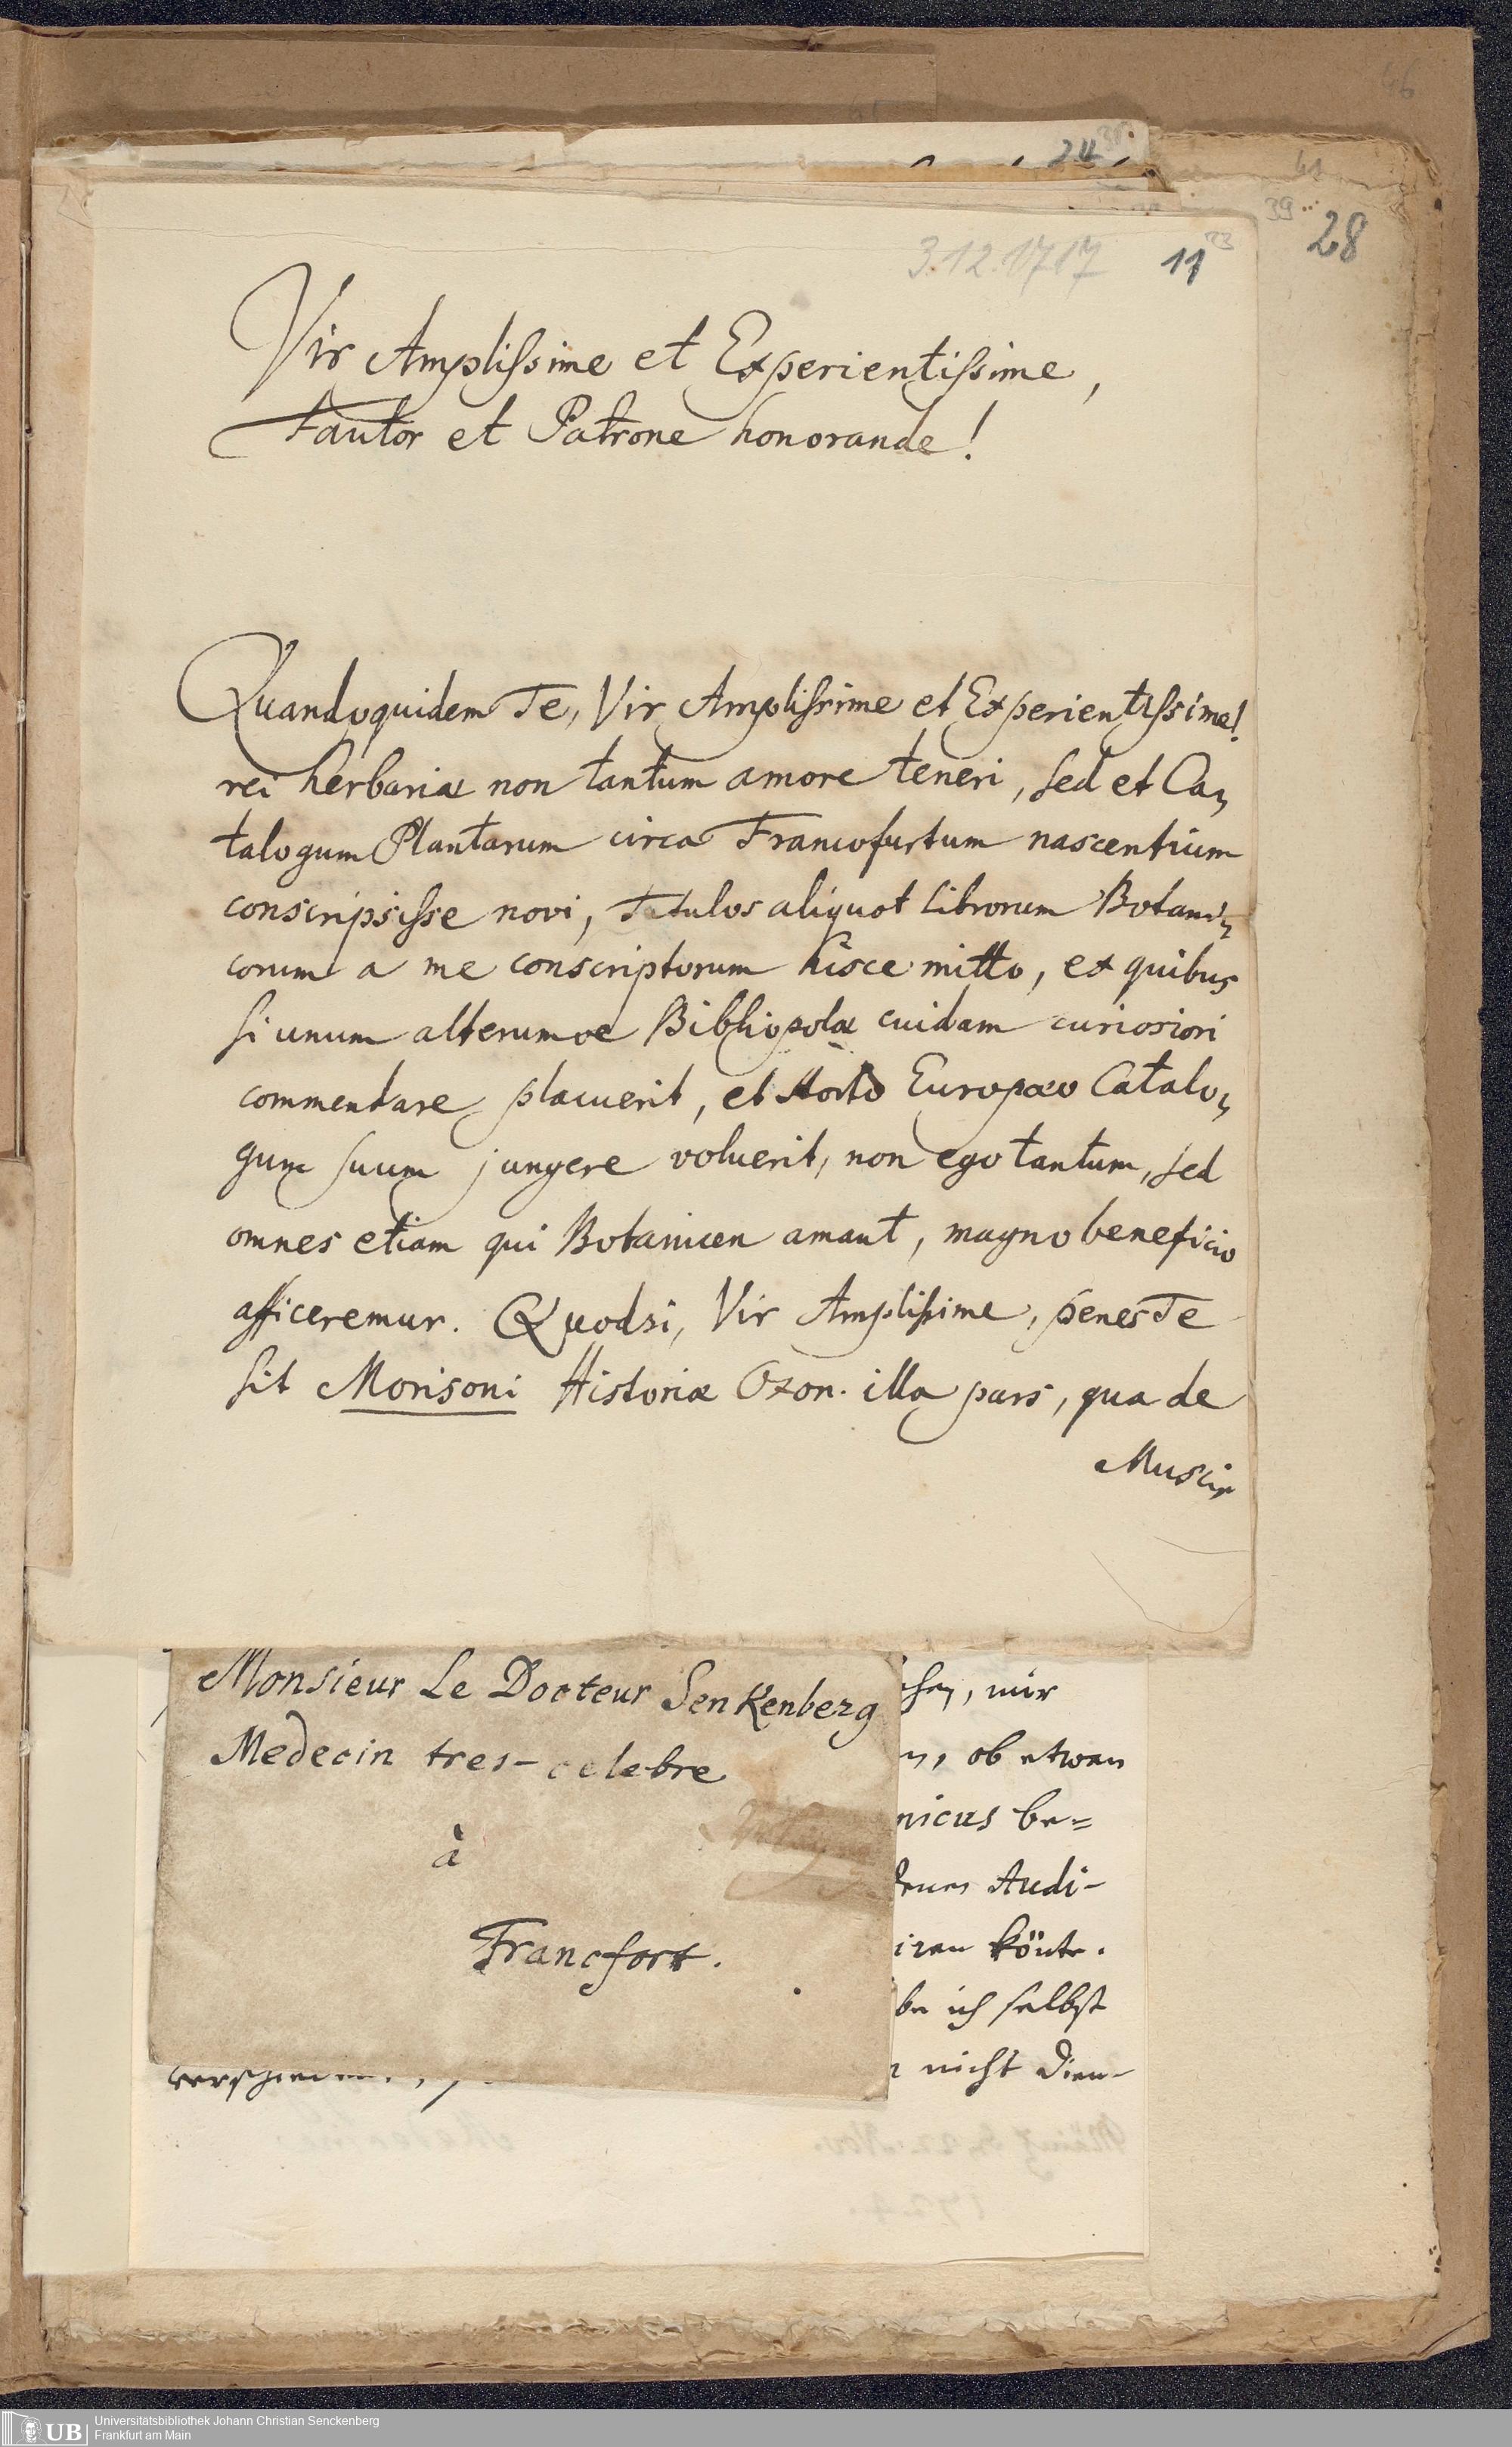 46
24
41
39
28
3.12.1717
11
Vir Amplissime et Experientissime,
Fautor et Patrone honorande!
Quandoquidem Te, Vir Amplissime et Experientissime!
rei herbariæ non tantum amore teneri, sed et Ca⸗
talogum Plantarum circa Francofurtum nascentium
conscripsisse novi, Titulos aliquot librorum Botani⸗
corum a me conscriptorum hisce mitto, ex quibus
si unum alterumve Bibliopolæ cuidam curiosiori
commendare placuerit, et Horto Europæo Catalo⸗
gum suum jungere voluerit, non ego tantum, sed
omnes etiam qui Botanicen amant, magno beneficio
afficeremur. Quodsi, Vir Amplissime, penes Te
sit Morisoni Historiæ Oxon. illa pars, qua de
Muscis
Monsieur Le Docteur Senkenberg
Medecin tres-celebre
à
Francfort.
mir
ob etwan
nicus be=
Audi-
könte.
ich selbst
nicht dien-
UB
Universitätsbibliothek Johann Christian Senckenberg
Frankfurt am Main